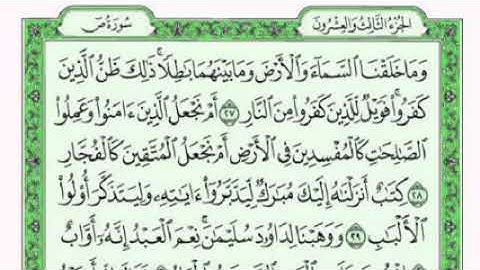 الجزء الثالث والعشرون
سورة ص
وَمَا خَلَقْنَا ٱلسَّمَآءَ وَٱلْأَرْضَ وَمَا بَيْنَهُمَا بَٰطِلًا ۚ ذَٰلِكَ ظَنُّ ٱلَّذِينَ
كَفَرُوا۟ ۚ فَوَيْلٌ لِّلَّذِينَ كَفَرُوا۟ مِنَ ٱلنَّارِ ٢٧ أَمْ نَجْعَلُ ٱلَّذِينَ ءَامَنُوا۟ وَعَمِلُوا۟
ٱلصَّٰلِحَٰتِ كَٱلْمُفْسِدِينَ فِى ٱلْأَرْضِ أَمْ نَجْعَلُ ٱلْمُتَّقِينَ كَٱلْفُجَّارِ
٢٨ كِتَٰبٌ أَنزَلْنَٰهُ إِلَيْكَ مُبَٰرَكٌ لِّيَدَّبَّرُوٓا۟ ءَايَٰتِهِۦ وَلِيَتَذَكَّرَ أُو۟لُوا۟
ٱلْأَلْبَٰبِ ٢٩ وَوَهَبْنَا لِدَاوُۥدَ سُلَيْمَٰنَ ۚ نِعْمَ ٱلْعَبْدُ ۖ إِنَّهُۥٓ أَوَّابٌ